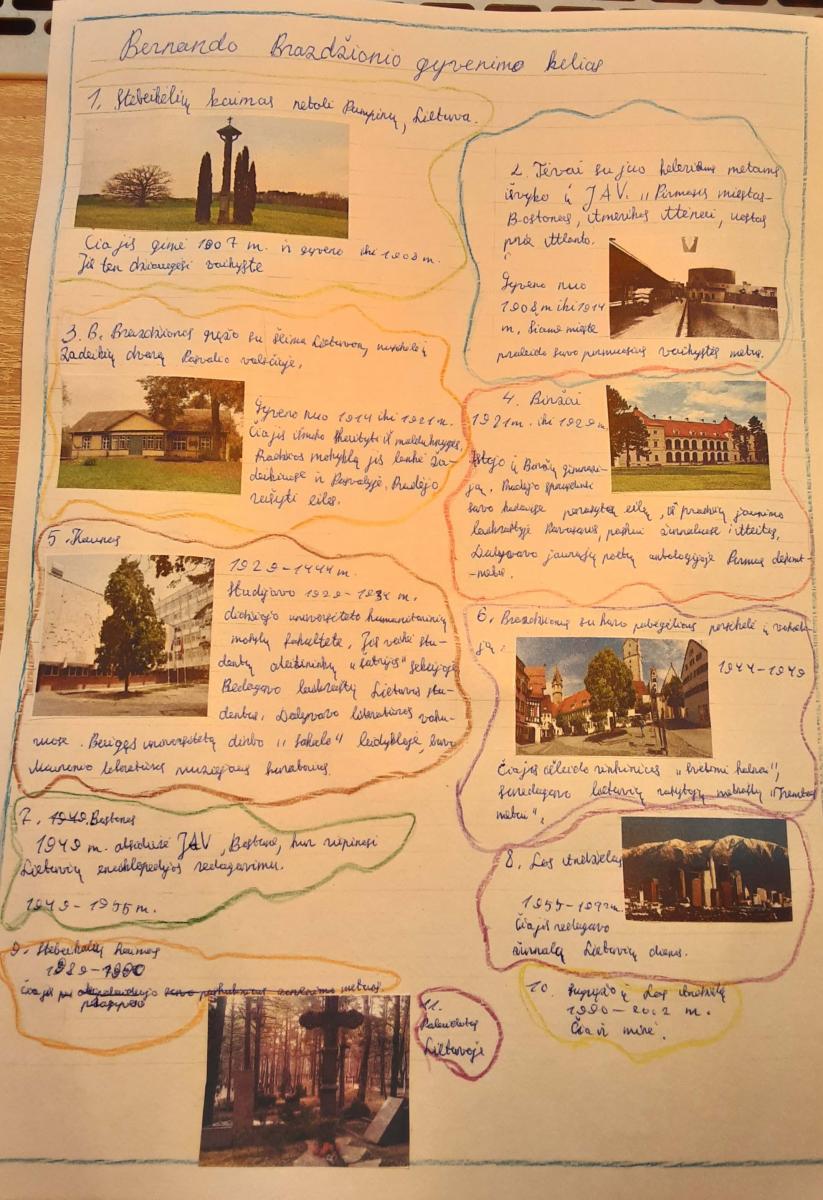 Bernardo Brazdžionio gyvenimo kelias
1. Stebeikėlių kaimas netoli Pumpėnų, Lietuva.
Čia jis gimė 1907 m. ir gyveno iki 1908 m.
Jis ten džiaugėsi vaikyste
2. Tėvai su juo keleriems metams
išvyko į JAV. "Pirmasis miestas-
Bostonas, Amerikos Atėnai, uostas
prie Atlanto.
Gyveno nuo
1908 m iki 1914
m. Šiame mieste
praleido savo pirmuosius vaikystės metus.
3. B. Brazdžionis grįžo su šeima Lietuvon, nusikėlė į
Žadeikių dvarą Pasvalio valsčiuje.
Gyveno nuo 1914 iki 1921 m.
Čia jis išmoko skaityti iš maldaknygės
Pradžios mokyklą jis lankė Ža-
deikiuose ir Pasvalyje. Pradėjo
rašyti eiles.
4. Biržai
1921 m. iki 1929 m.
Įstojo į Biržų gimnazi-
ją. Pradėjo spausdinti
savo kūrinius parašytą eilių, iš pradžių jaunimo
laikraštyje Pavasaris, paskui žurnaluose Ateitis,
Dalyvavo jaunųjų poetų antologijoje Pirmas dešimt-
-metis.
5. Kaunas
1929-1444 m.
Studijavo 1929-1934 m.
didžiojo universiteto humanitarinių
mokslų fakultete. Jis veikė stu-
dentų ateitininkų "Šatrijos" sekcijoje
Redagavo laikraštį Lietuvos stu-
dentas. Dalyvavo literatūros vaka-
ruose. Baigęs universitetą dirbo "Sakalo" leidykloje, buvo
Maironio literatūros muziejaus kuratorius.
6. Brazdžionis su karo pabėgėliais persikėlė į vokieti-
ją.
1944-1949
Čia jis išleido rinkinius "Svetimi kalnai",
suredagavo lietuvių rašytojų metraštį "Tremties
metai".
7. 1949. Bostonas
1949 m. atsidūrė JAV, Bostone, kur rūpinosi
Lietuvių enciklopedijos redagavimu.
1949-1955 m.
8. Los Andželas
1955-
Čia jis redagavo
žurnalą Lietuvių dienos.
9. Stebeikėlių kaimas
1989-1990
Čia jis
10. Sugrįžo į Los Andželą
1990-2002 m.
Čia ir mirė.
11.
Palaidotas
Lietuvoje